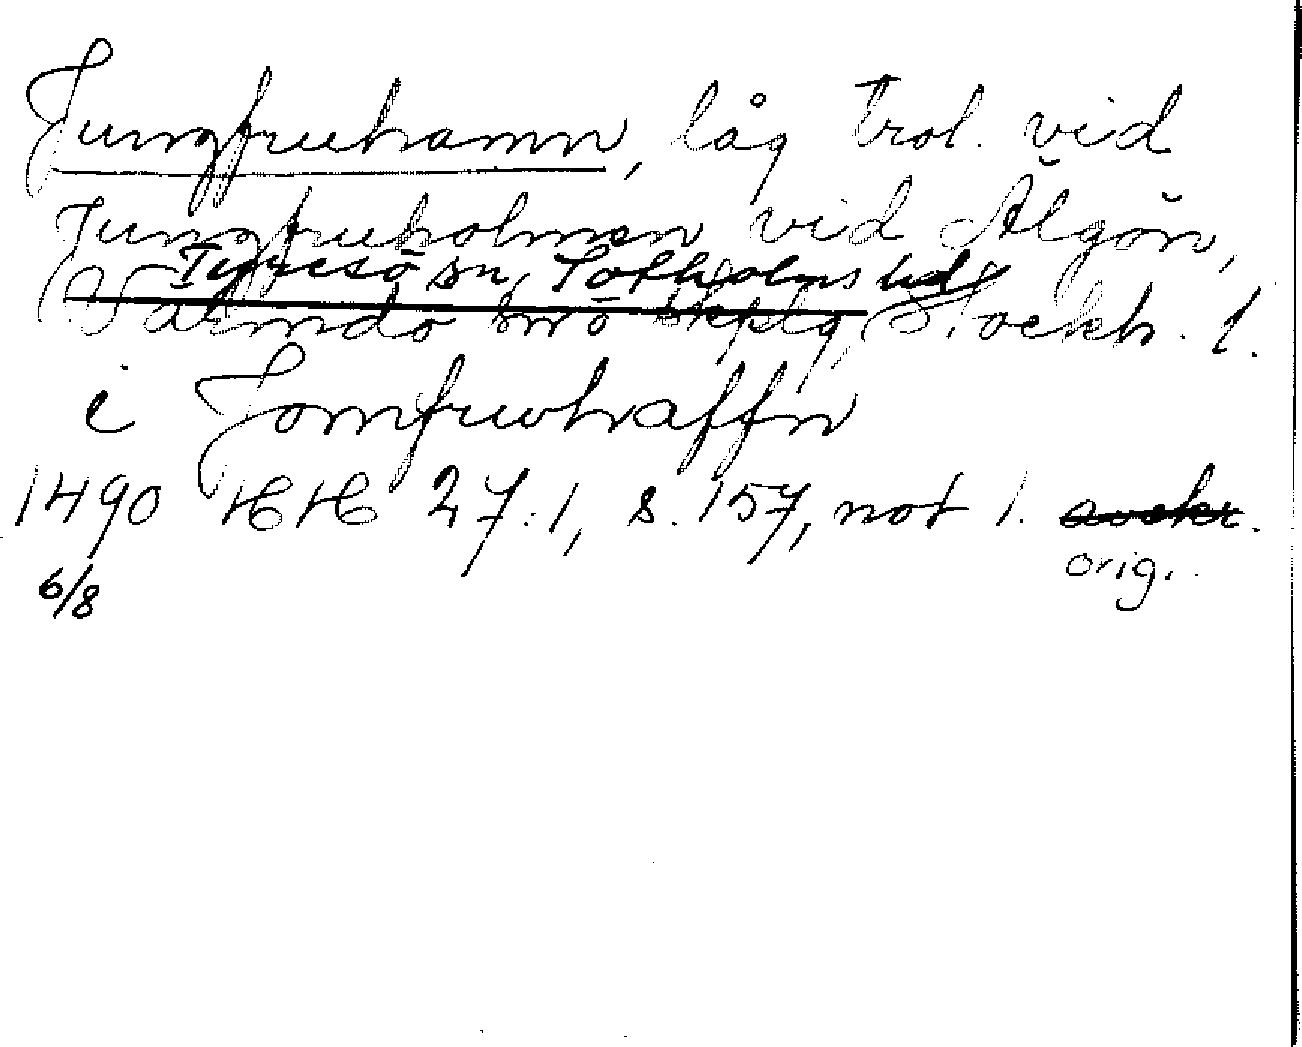 Jungfruhamn, låg trol. vid
Jungfruholmen vid Älgön,
Tyresö sn, Sotholms hd
Värmdö smö skplg, Stockh. l.
i Jomfrwhaffn
1490 HH 27:1, s. 157, not 1.
orig.
6/8